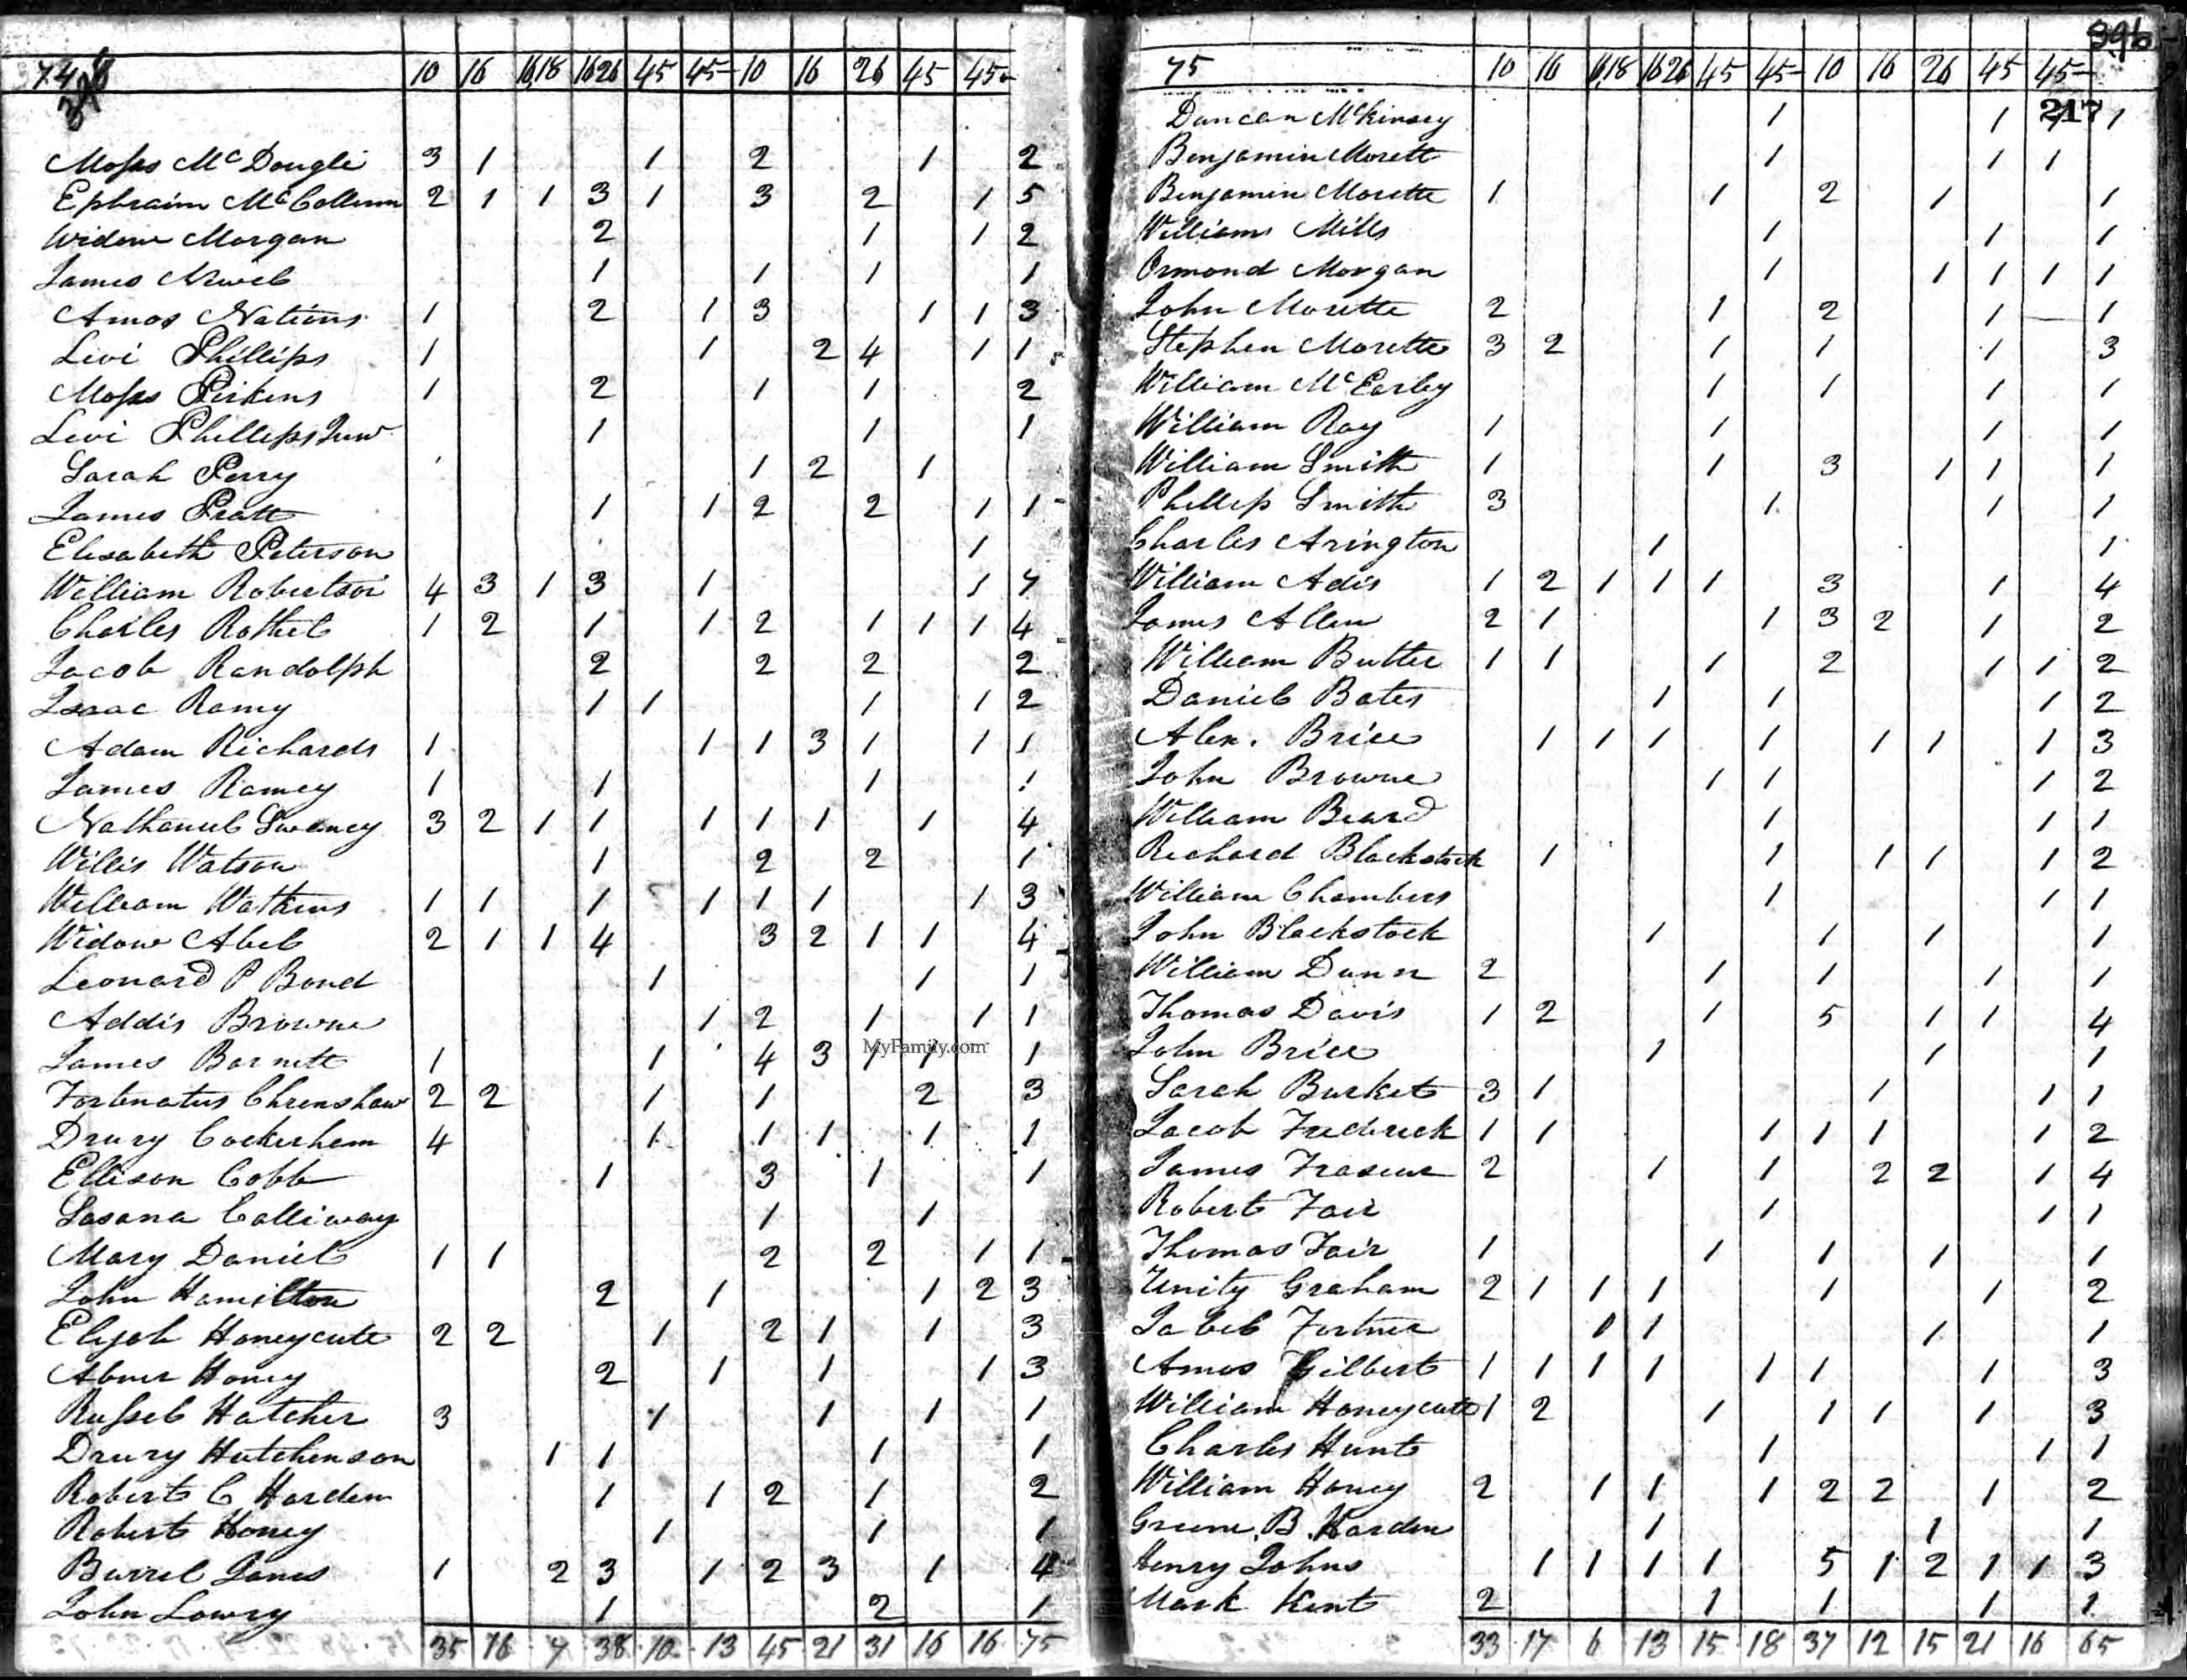 74 10 16 16,18 16 26 45 45- 10 16 26 45 45-
Moses McDougle 3 1 1 2 1 2
Ephraim McCollum 2 1 1 3 1 3 2 1 5
Widow Morgan 2 1 1 2
James Newel 1 1 1 1
Amos Nations 1 2 1 3 1 1 3
Levi Phillips 1 1 2 4 1 1
Moses Perkins 1 2 1 1 2
Levi Phillips Junr 1 1 1
Sarah Perry 1 2 1
James Pratt 1 1 2 2 1 1
Elisabeth Peterson 1
William Robertson 4 3 1 3 1 1 7
Charles Rothel 1 2 1 1 2 1 1 1 4
Jacob Randolph 2 2 2 2
Isaac Ramy 1 1 1 1 2
Adam Richards 1 1 1 3 1 1 1
James Ramey 1 1 1 1
Nathaniel Swaney 3 2 1 1 1 1 1 1 4
Willis Watson 1 2 2 1
William Watkins 1 1 1 1 1 1 1 3
Widow Abel 2 1 1 4 3 2 1 1 4
Leonard P Bond 1 1 1
Addis Browne 1 2 1 1 1
James Barnett 1 1 4 3 1 1 1
MyFamily.com
Fortunatus Chrenshaw 2 2 1 1 2 3
Drury Cockerhem 4 1 1 1 1 1
Ellison Cobb 1 3 1 1
Sasana Calliway 1 1
Mary Daniel 1 1 2 2 1 1
John Hamilton 2 1 1 2 3
Elijah Honeycute 2 2 1 2 1 1 3
Abner Honey 2 1 1 1 3
Russel Hatcher 3 1 1 1 1
Drury Hutchenson 1 1 1 1
Robert C Harden 1 1 2 1 2
Robert Honey 1 1 1
Burrel James 1 2 3 1 2 3 1 4
John Lowry 1 2 1
35 16 7 38 10 13 45 21 31 16 16 75
396
75 10 16 16,18 16 26 45 45- 10 16 26 45 45-
217
Duncan McKinsey 1 1 1 1
Benjamin Morett 1 1 1
Benjamin Morette 1 1 2 1 1
William Mills 1 1 1
Ormond Morgan 1 1 1 1 1
John Morette 2 1 2 1 — 1
Stephen Morette 3 2 1 1 1 3
William McEarley 1 1 1 1
William Ray 1 1 1 1
William Smith 1 1 3 1 1 1
Phillip Smith 3 1 1 1
Charles Arington 1 1
William Adis 1 2 1 1 1 3 1 4
James Allen 2 1 1 3 2 1 2
William Butler 1 1 1 2 1 1 2
Daniel Bates 1 1 1 2
Alex. Brice 1 1 1 1 1 1 1 3
John Browne 1 1 1 2
William Beard 1 1 1
Richard Blackstock 1 1 1 1 1 2
William Chambers 1 1 1
John Blackstock 1 1 1 1
William Dunn 2 1 1 1 1
Thomas Davis 1 2 1 5 1 1 4
John Brice 1 1 1
Sarah Burket 3 1 1 1 1
Jacob Frederick 1 1 1 1 1 1 2
James Fraseur 2 1 1 2 2 1 4
Robert Fair 1 1 1
Thomas Fair 1 1 1 1 1
Unity Graham 2 1 1 1 1 1 2
Jabel Fortner 0 1 1 1
Amos Gilbert 1 1 1 1 1 1 1 3
William Honeycutt 1 2 1 1 1 1 3
Charles Hunt 1 1 1
William Honey 2 1 1 1 2 2 1 2
Greene. B. Harden 1 1 1
Henry Johns 1 1 1 1 5 1 2 1 1 3
Mark Kent 2 1 1 1 1
33 17 6 13 15 18 37 12 15 21 16 65